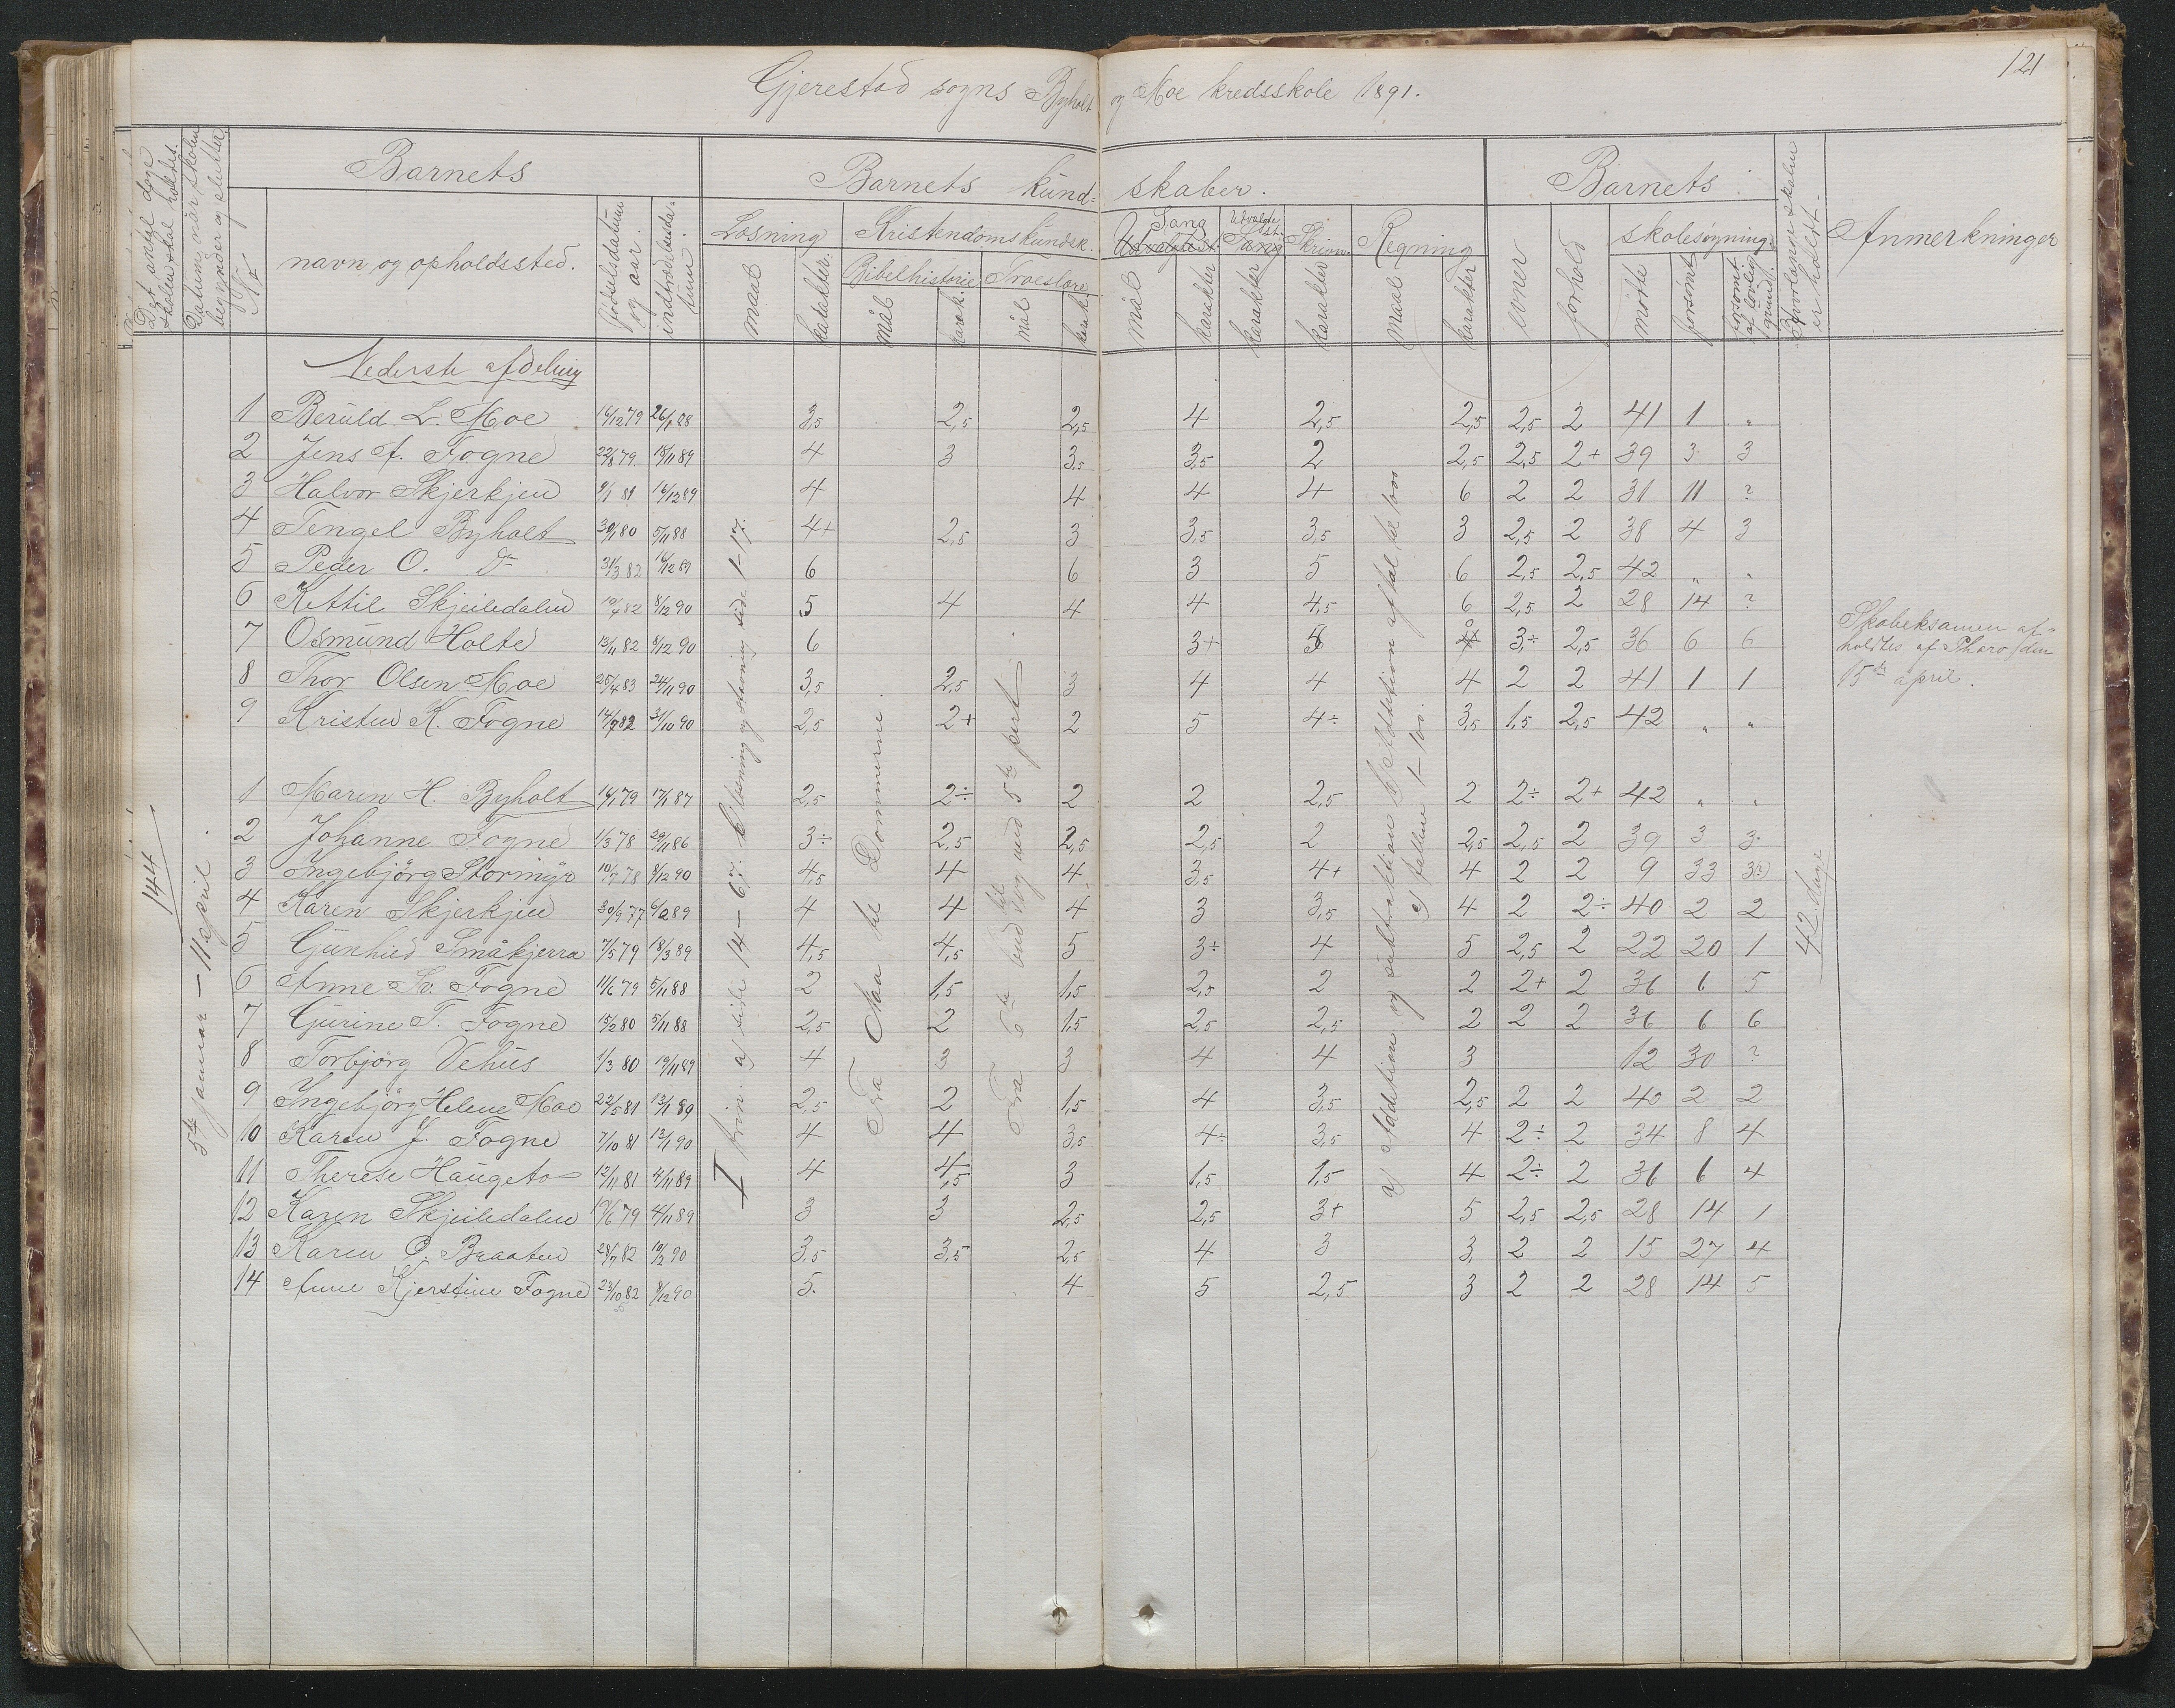 121
Gjerestad sogns Byholt og Moe kredsskole 1891.
Det antal dage skolen skal holdes.
Datum, når skolen begynder og slutter
Barnets
Barnets kund= skaber.
Barnets
Anmerkninger
No
navn og opholdssted.
fødselsdatum og aar.
indtrædelsesda= tum.
Læsning
Kristendomskundsk.
Sang
Udvalgte st.
Skrivn.
Regning
evner
forhold
skolesøgning.
Bibelhistorie
Troeslære
maal
karakter.
mål
karak.
mål
karak.
mål
karakter
karakter
karakter
maal
karakter
mødte
forsømt
forsømt af lovlig grund.
Hvorlænge skolen er holdt.
Nederste afdeling
1 Beruld L. Moe 16/12 79 26/1 88 3,5 2,5 2,5 4 2,5 2,5 2,5 2 41 1 "
2 Jens A. Fogne 22/8 79 18/11 89 4 3 3,5 3,5 2 2,5 2,5 2+ 39 3 3
3 Halvor Skjerkjen 9/1 81 16/12 89 4 4 4 4 6 2 2 31 11 ?
4 Tengel Byholt 30/1 80 5/11 88 4+ 2,5 3 3,5 3,5 3 2,5 2 38 4 3
5 Peder O. do 31/3 82 16/12 89 6 6 3 5 6 2,5 2,5 42 " "
6 Kettil Skjeiledalen 10/4 82 8/12 90 5 4 4 4 4,5 6 2,5 2 28 14 ?
7 Osmund Holte 13/11 82 8/12 90 6 3+ 5 3÷ 2,5 36 6 6
8 Thor Olsen Moe 25/4 83 24/11 90 3,5 2,5 3 4 4 4 2 2 41 1 1
9 Kristen K. Fogne 14/7 82 31/10 90 2,5 2+ 2 5 4÷ 3,5 1,5 2,5 42 " "
1 Maren H. Byholt 14/1 79 17/1 87 2,5 2÷ 2 2 2,5 2 2÷ 2+ 42 " "
2 Johanne Fogne 1/3 78 29/11 86 3÷ 2,5 2,5 2,5 2 2,5 2,5 2 39 3 3
3 Ingebjörg Stormyr 10/7 78 8/12 90 4,5 4 4 3,5 4+ 4 2 2 9 33 3?)
4 Karen Skjerkjen 30/9 77 6/2 89 4 4 4 3 3,5 4 2 2÷ 40 2 2
5 Gunhild Småkjerra 7/5 79 18/3 89 4,5 4,5 5 3÷ 4 5 2,5 2 22 20 1
6 Anne Sv. Fogne 11/6 79 5/11 88 2 1,5 1,5 2,5 2 2 2+ 2 36 6 5
7 Gurine T. Fogne 15/2 80 5/11 88 2,5 2 1,5 2,5 2,5 2 2 2 36 6 6
8 Torbjörg Vehus 1/3 80 19/11 89 4 3 3 4 4 3 12 30 ?
9 Ingebjörg Helene Moe 22/5 81 13/1 89 2,5 2 1,5 4 3,5 2,5 2 2 40 2 2
10 Karen J. Fogne 7/10 81 13/1 90 4 4 3,5 4÷ 3,5 4 2÷ 2 34 8 4
11 Therese Haugeto 12/11 81 4/11 89 4 4,5 3 1,5 1,5 4 2÷ 2 36 6 4
12 Karen Skjeiledalen 19/6 79 4/11 89 3 3 2,5 2,5 3+ 5 2,5 2,5 28 14 1
13 Karen O. Braaten 28/7 82 10/2 90 3,5 3,5 2,5 4 3 3 2 2 15 27 4
14 Anne Kjerstine Fogne 23/10 82 8/12 90 5. 4 5 2,5 3 2 2 28 14 5
144
5te januar – 11 april.
I trin a) side 14 – 67. b) læsning og stavning side 1–17.
Fra Noa til Dommerne.
Fra 6te bud til og med 5te part
a) Addition og subtraktion b) Addition af tal til 1000 c) tallene 1–100.
42 dage
Skoleeksamen af= holdtes af Tharo den 15de april.